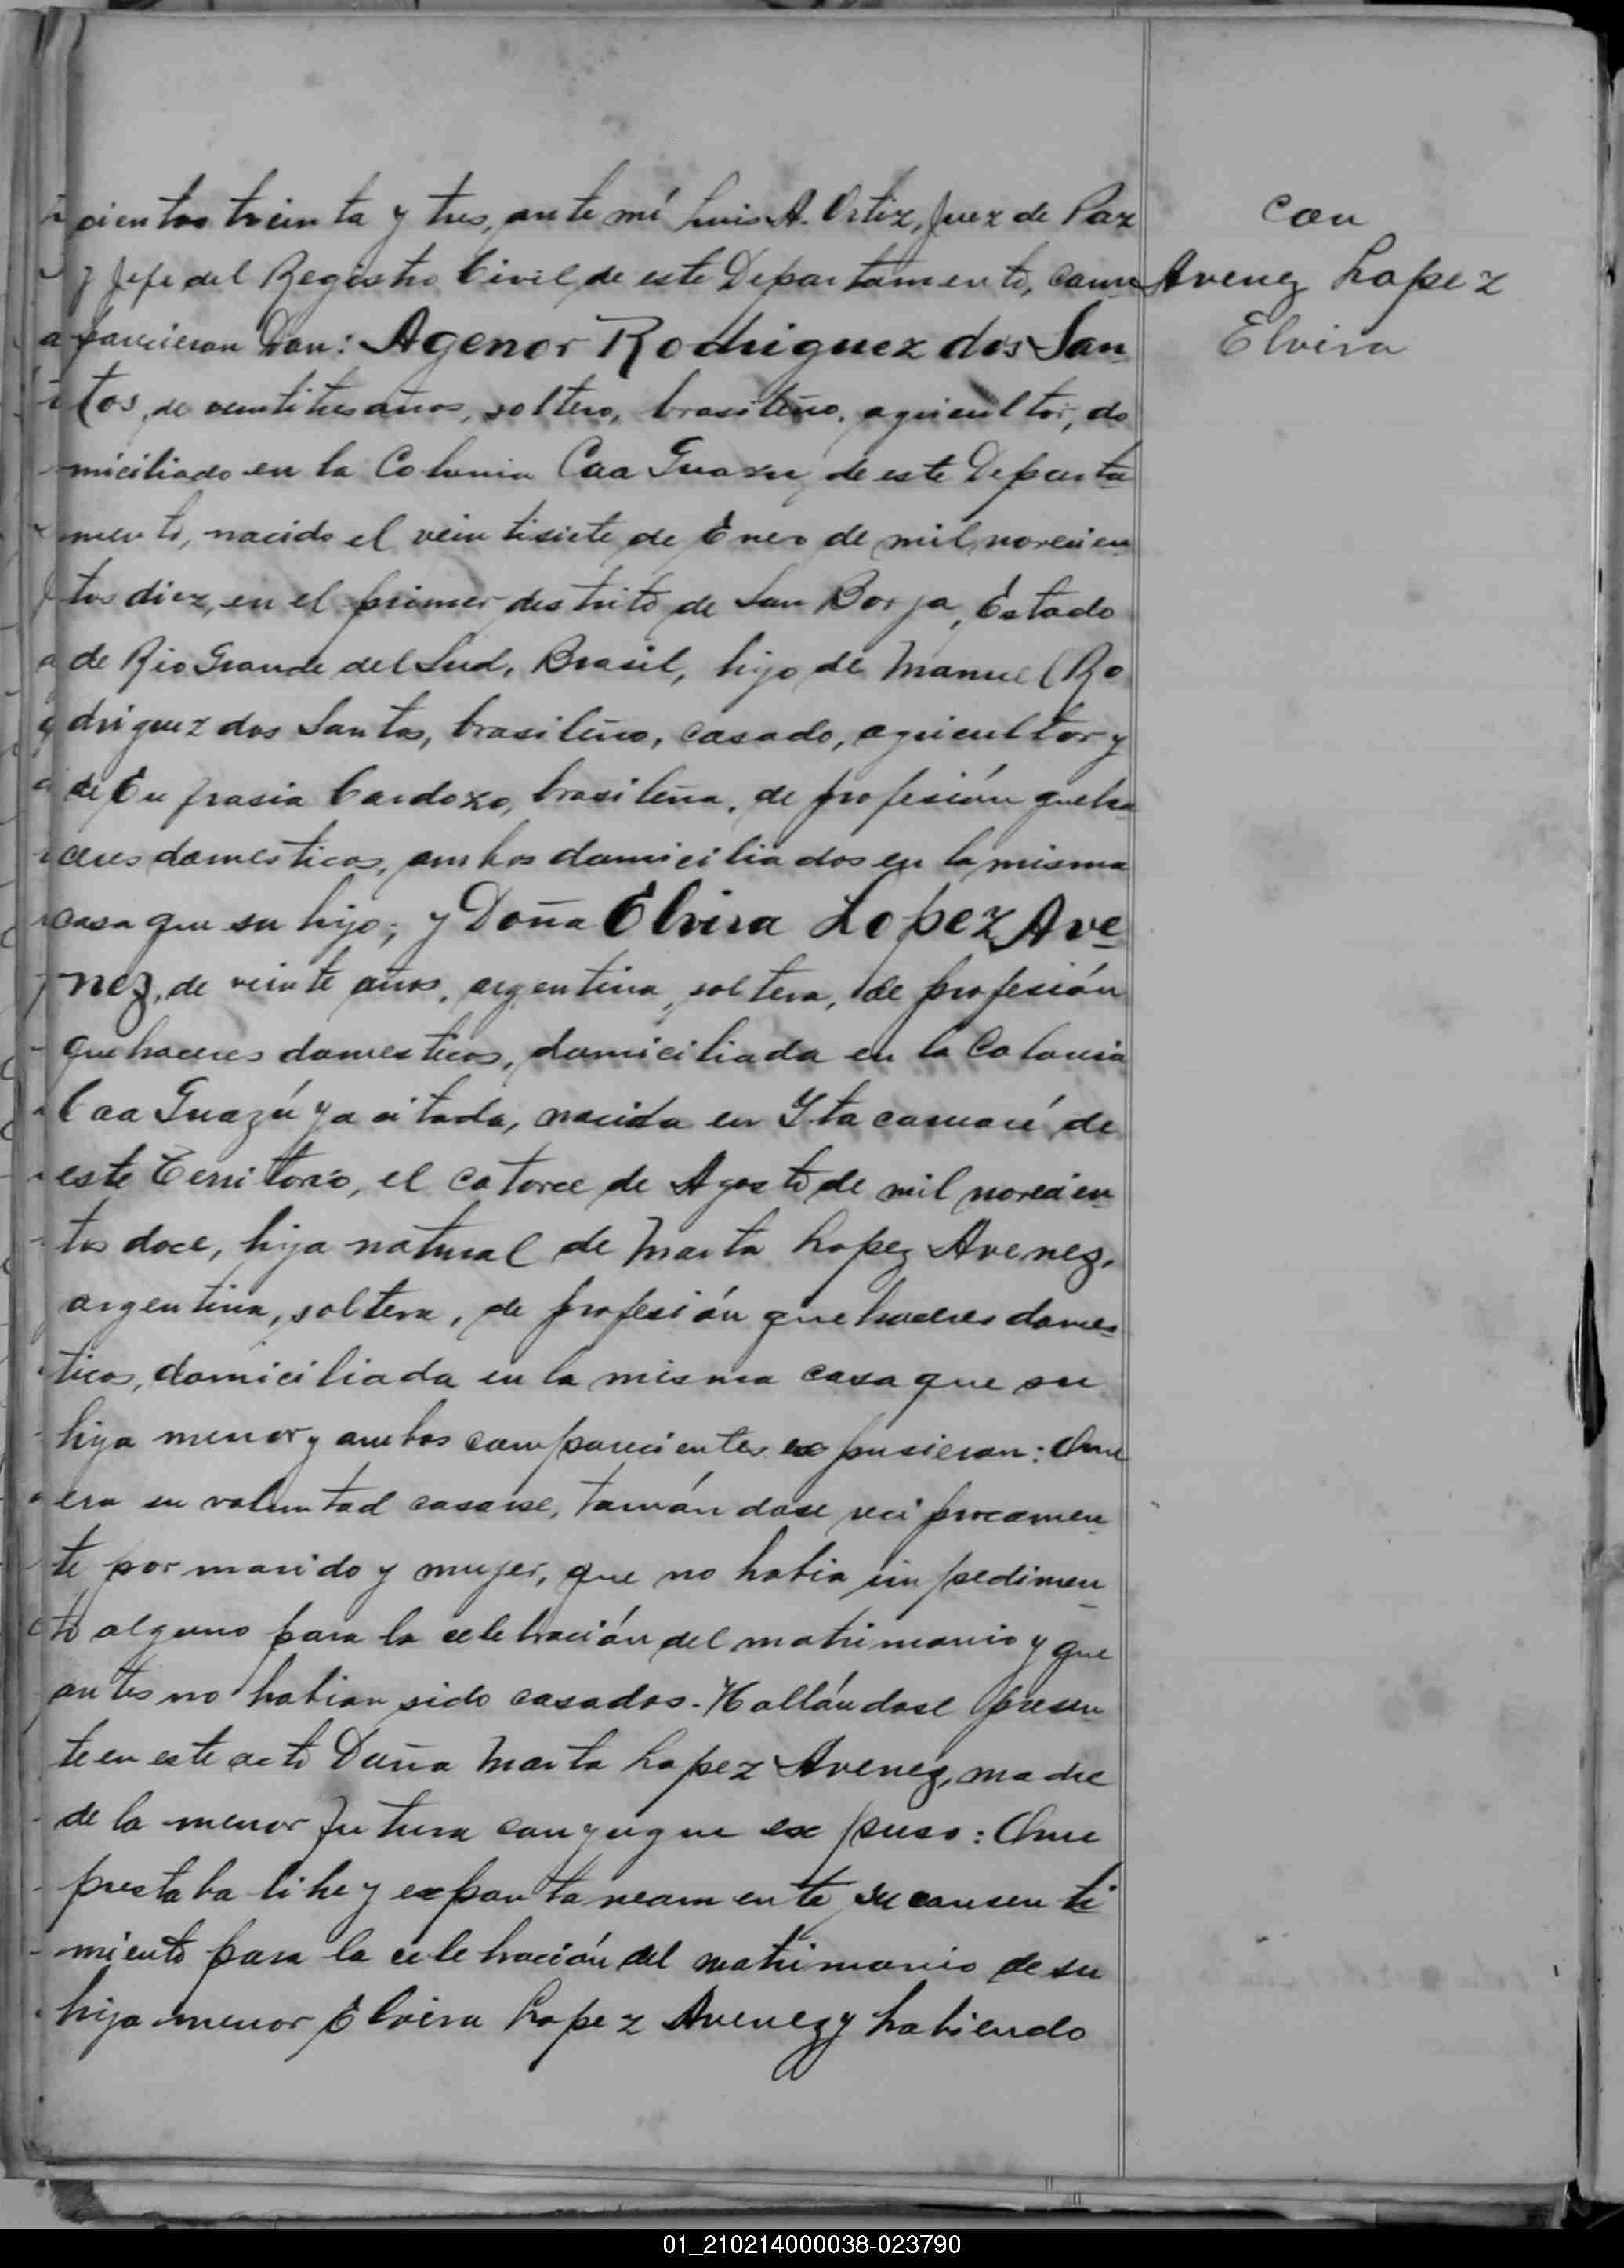 cientos treinta y tres, ante mí Luis A. Ortiz, Juez de Paz
y Jefe del Registro Civil de este Departamento, com
parecieron Don: Agenor Rodriguez dos San
tos, de veintitres años, soltero, brasileño, agricultor, do
miciliado en la Colonia Caa Guazu, de este Departa
mento, nacido el veintisiete de Enero de mil novecien
tos diez, en el primer destrito de San Borja, Estado
de Rio Grande del Sud, Brasil, hijo de Manuel Ro
driguez dos Santos, brasileño, casado, agricultor y
de Eufrasia Cardozo, brasileña, de profesión queha
ceres domesticos, ambos domiciliados en la misma
casa que su hijo; y Doña Elvira Lopez Ave
nez, de veinte años, argentina, soltera, de profesión
quehaceres domesticos, domiciliada en la Colonia
Caa Guazú ya citada, nacida en Itacaruaré de
este Territorio, el catorce de Agosto de mil novecien
tos doce, hija natural de Marta Lopez Avenez,
argentina, soltera, de profesión quehaceres domes
ticos, domiciliada en la misma casa que su
hija menor y ambos comparecientes expusieron: Que
era su voluntad casarse, tomándose reciprocamen
te por marido y mujer, que no habia impedimen
to alguno para la celebración del matrimonio y que
antes no habian sido casados. Hallándose presen
te en este acto Doña Marta Lopez Avenez, madre
de la menor futura conyugue expuso: Que
prestaba libre y expontaneamente su consenti
miento para la celebración del matrimonio de su
hija menor Elvira Lopez Avenez y habiendo
con
Avenez Lopez
Elvira
01_210214000038-023790